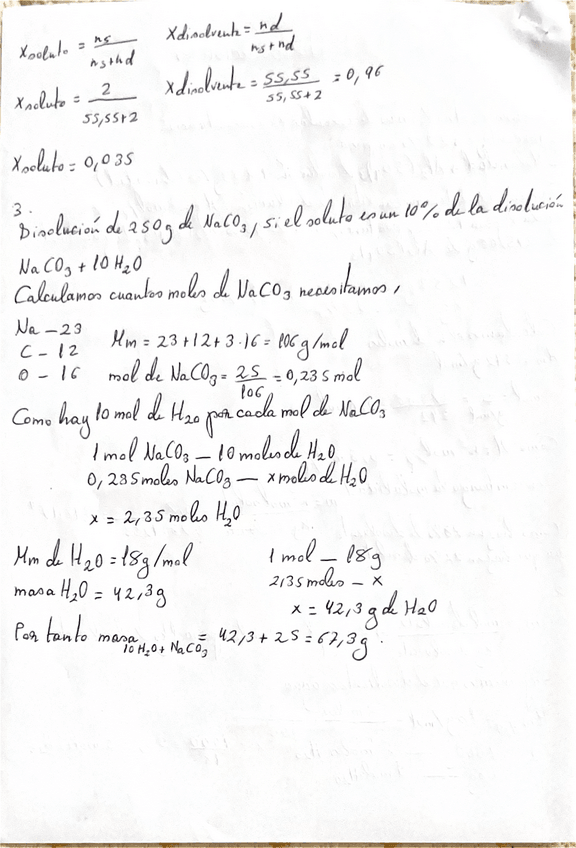 Xsoluto = ns/(ns+nd) Xdisolvente = nd/(ns+nd)
Xsoluto = 2/(55,55+2) Xdisolvente = 55,55/(55,55+2) = 0,96
Xsoluto = 0,035
3.
Disolución de 250g de NaCO3, si el soluto es un 10% de la disolución
NaCO3 + 10 H2O
Calculamos cuantos moles de NaCO3 necesitamos,
Na – 23
C – 12 Mm = 23+12+3·16 = 106 g/mol
O – 16 mol de NaCO3 = 25/106 = 0,235 mol
Como hay 10 mol de H2O por cada mol de NaCO3
1 mol NaCO3 — 10 moles de H2O
0,235 moles NaCO3 — x moles de H2O
x = 2,35 moles H2O
Mm de H2O = 18g/mol 1 mol — 18g
masa H2O = 42,3g 2,35 moles – x
x = 42,3 g de H2O
Por tanto masa 10 H2O + NaCO3 = 42,3 + 25 = 67,3g.